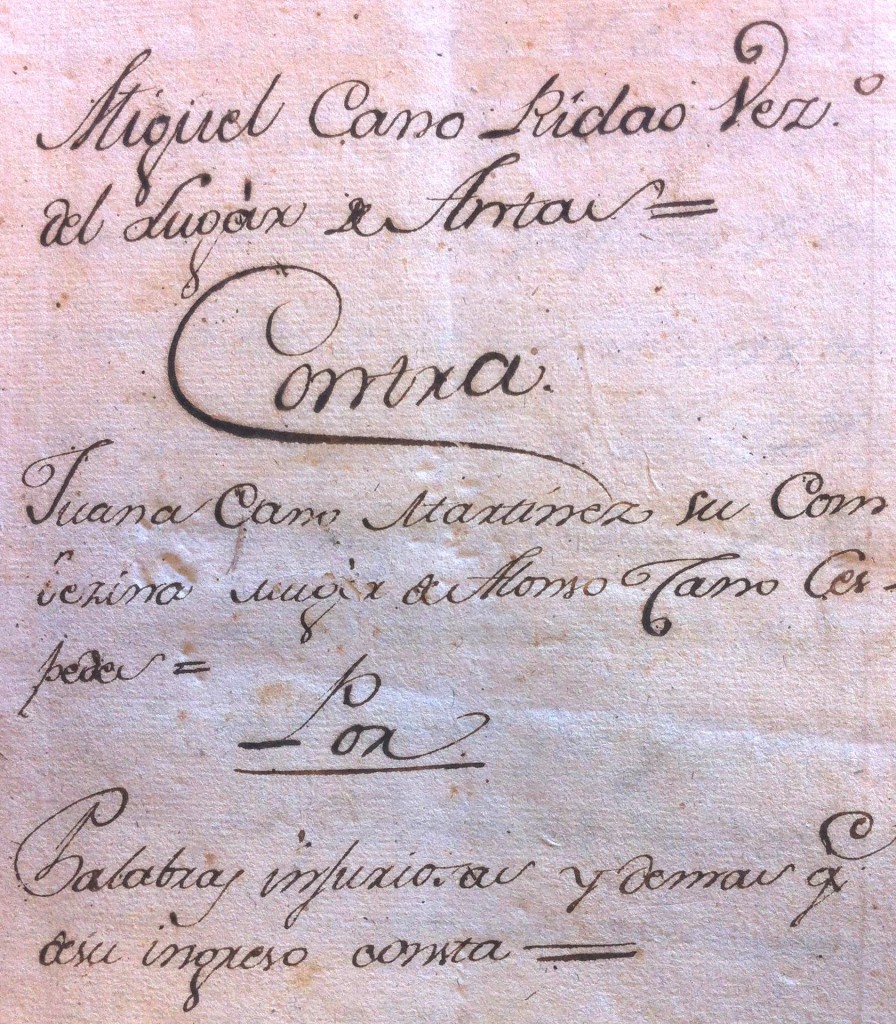 Miguel Cano Ridao Vez.º
del Lugár de Antas =
Contra.
Juana Cano Martinez su Con
vezina mugèr de Alonso Cano Ces-
pedes =
Por
Palabras injuriosas y demas q.e
desu ingreso consta =